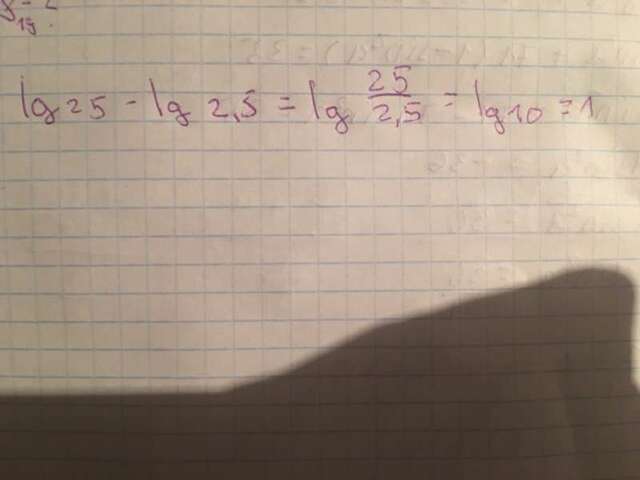 lg 25 - lg 2,5 = lg 25/2,5 = lg 10 = 1